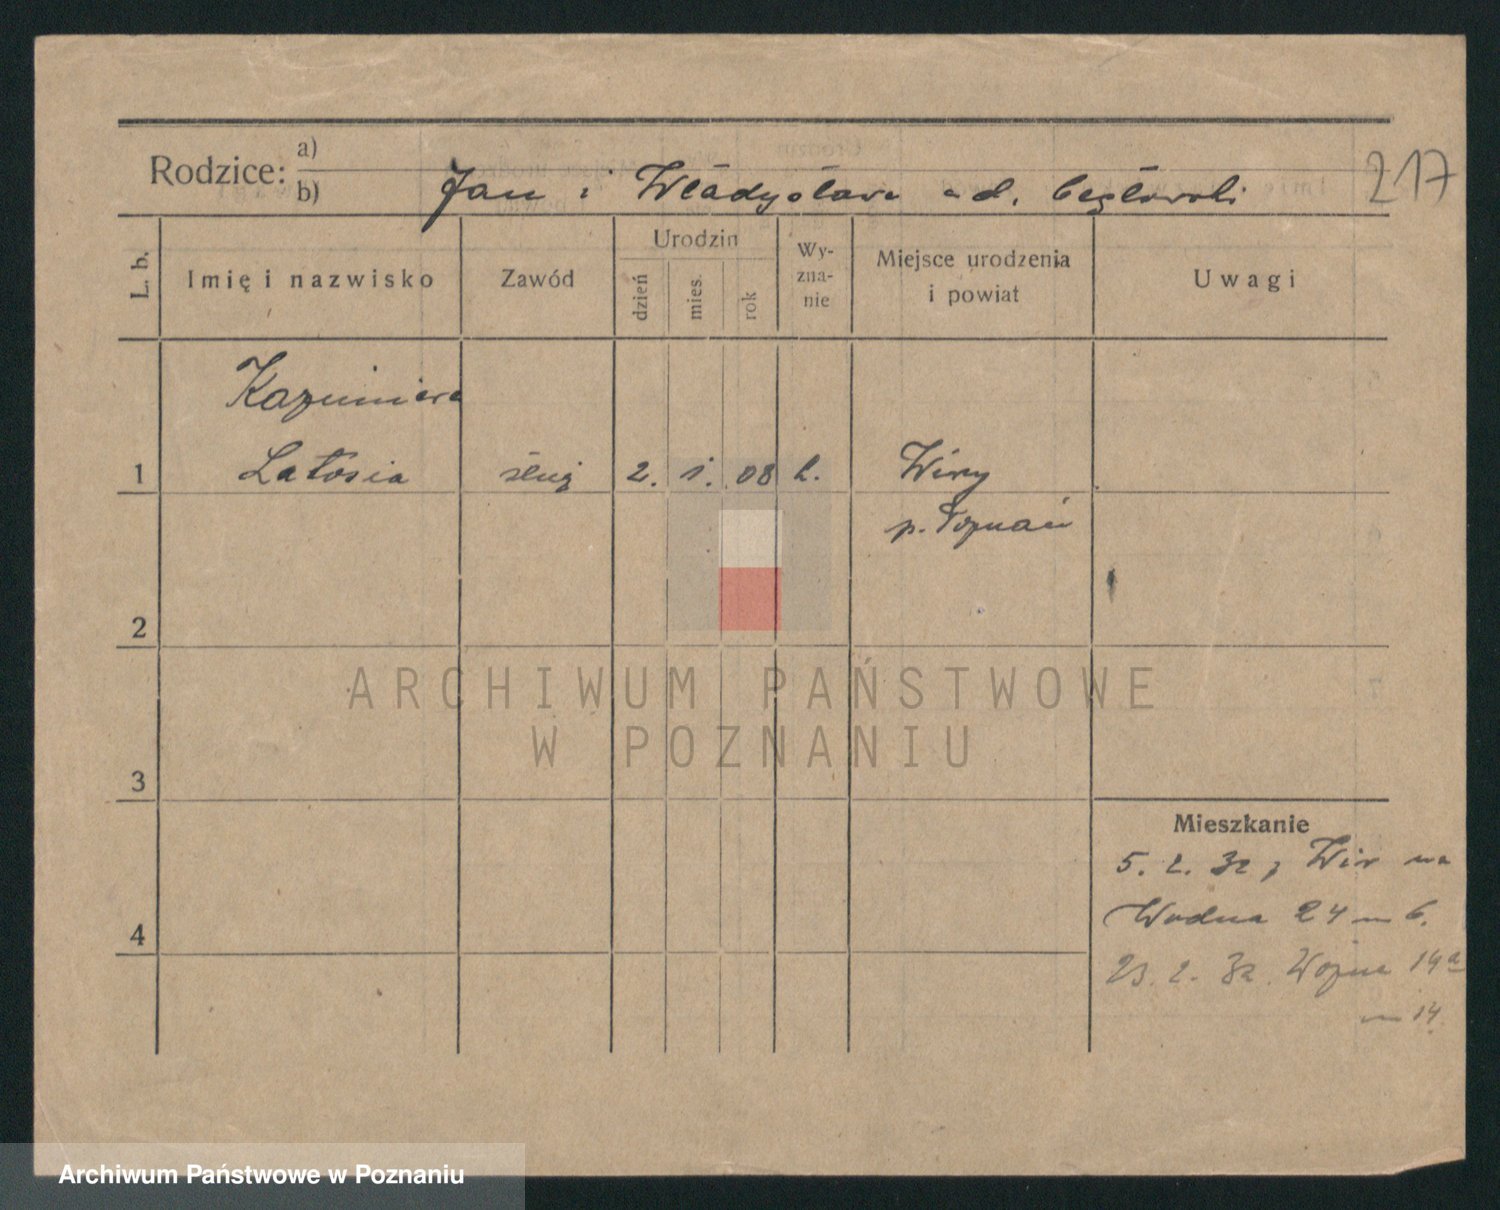 Rodzice: a)
b) Jan i Władysława
217
L. b.
Imię i nazwisko
Zawód
Urodzin
dzień
mies.
rok
Wy-
zna-
nie
Miejsce urodzenia
i powiat
Uwagi
Kazimiera
1 Latosia służ 2. 1. 08 k. Wiry
p. Poznań
2
3
4
Mieszkanie
5. 2. 32 z Wir na
Wodna 24 m 6.
23. 2. 32. 14a
m 14
ARCHIWUM PAŃSTWOWE
W POZNANIU
Archiwum Państwowe w Poznaniu